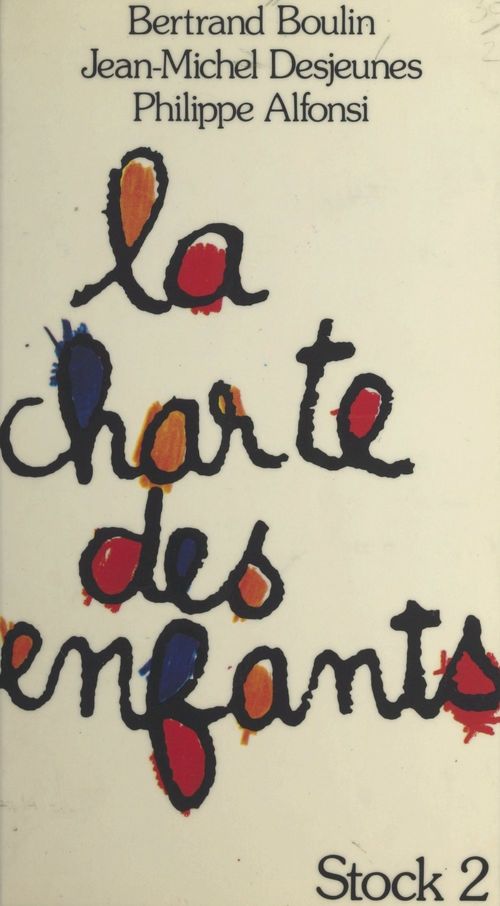 Bertrand Boulin
Jean-Michel Desjeunes
Philippe Alfonsi
la
charte
des
enfants
Stock 2